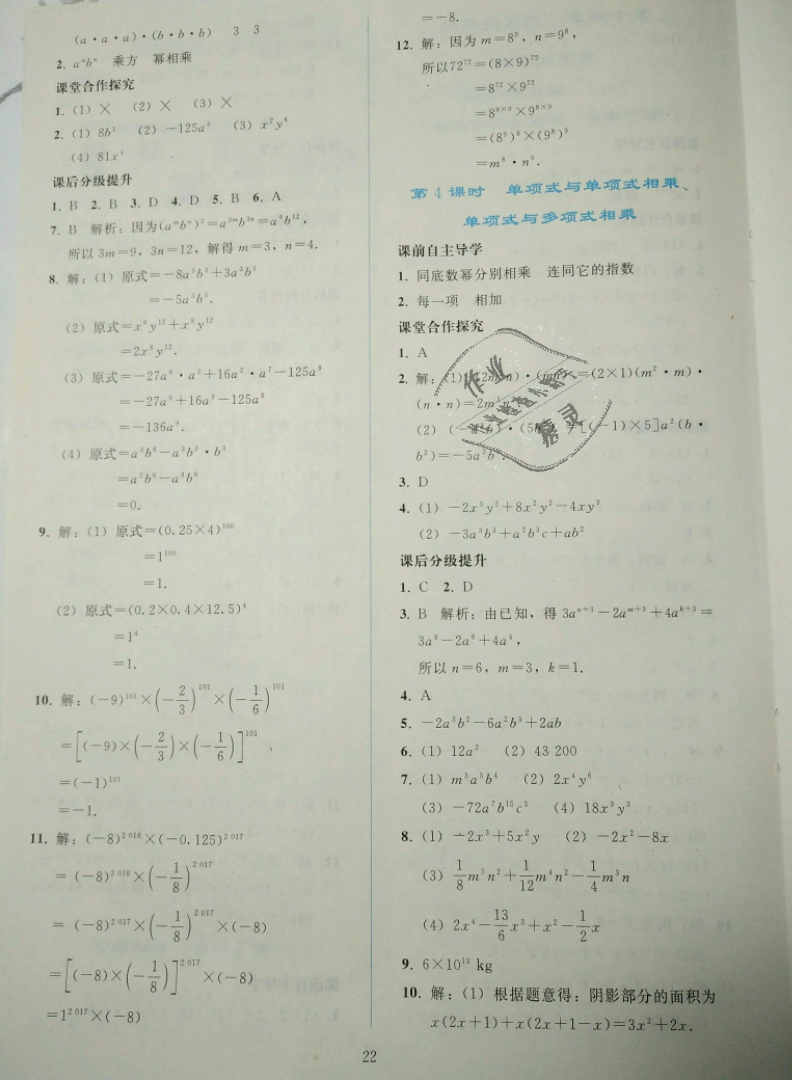 (a·a·a)·(b·b·b) 3 3
2. aⁿbⁿ 乘方 幂相乘
课堂合作探究
1. (1) × (2) × (3) ×
2. (1) 8b³ (2) －125a³ (3) x²y⁶
(4) 81x⁴
课后分级提升
1. B 2. B 3. D 4. D 5. B 6. A
7. B 解析：因为(aᵐbⁿ)³＝a³ᵐb³ⁿ＝a⁹b¹²，
所以 3m＝9，3n＝12，解得 m＝3，n＝4.
8. 解：(1) 原式＝－8a³b³＋3a³b³
＝－5a³b³.
(2) 原式＝x⁸y¹²＋x⁸y¹²
＝2x⁸y¹².
(3) 原式＝－27a⁶·a³＋16a²·a⁷－125a⁹
＝－27a⁹＋16a⁹－125a⁹
＝－136a⁹.
(4) 原式＝a³b⁶－a³b³·b³
＝a³b⁶－a³b⁶
＝0.
9. 解：(1) 原式＝(0.25×4)¹⁰⁰
＝1¹⁰⁰
＝1.
(2) 原式＝(0.2×0.4×12.5)⁴
＝1⁴
＝1.
10. 解：(－9)¹⁰¹×(－2/3)¹⁰¹×(－1/6)¹⁰¹
＝[(－9)×(－2/3)×(－1/6)]¹⁰¹
＝(－1)¹⁰¹
＝－1.
11. 解：(－8)²⁰¹⁸×(－0.125)²⁰¹⁷
＝(－8)²⁰¹⁸×(－1/8)²⁰¹⁷
＝(－8)²⁰¹⁷×(－1/8)²⁰¹⁷×(－8)
＝[(－8)×(－1/8)]²⁰¹⁷×(－8)
＝1²⁰¹⁷×(－8)
＝－8.
12. 解：因为 m＝8⁹，n＝9⁸，
所以72⁷²＝(8×9)⁷²
＝8⁷²×9⁷²
＝8⁸ˣ⁹×9⁸ˣ⁹
＝(8⁹)⁸×(9⁸)⁹
＝m⁸·n⁹.
第 4 课时 单项式与单项式相乘、
单项式与多项式相乘
课前自主导学
1. 同底数幂分别相乘 连同它的指数
2. 每一项 相加
课堂合作探究
1. A
2. 解：(1) (2m²n)·(mn)＝(2×1)(m²·m)·
(n·n)＝2m³n²
(2) ·(5 ＝[(－1)×5]a²(b·
b²)＝－5a²b³.
3. D
4. (1) －2x³y²＋8x²y²－4xy³
(2) －3a³b³＋a²b³c＋ab²
课后分级提升
1. C 2. D
3. B 解析：由已知，得 3aⁿ⁺³－2aᵐ⁺³＋4aᵏ⁺³＝
3a⁹－2a⁶＋4a⁴，
所以 n＝6，m＝3，k＝1.
4. A
5. －2a³b²－6a²b³＋2ab
6. (1) 12a² (2) 43 200
7. (1) m³a⁵b⁴ (2) 2x⁴y⁶
(3) －72a⁷b¹⁵c³ (4) 18x⁹y³
8. (1) －2x³＋5x²y (2) －2x²－8x
(3) 1/8m⁵n²＋1/12m⁴n²－1/4m³n
(4) 2x⁴－13/6x³＋x²－1/2x
9. 6×10¹³ kg
10. 解：(1) 根据题意得：阴影部分的面积为
x(2x＋1)＋x(2x＋1－x)＝3x²＋2x.
作业
精灵
22